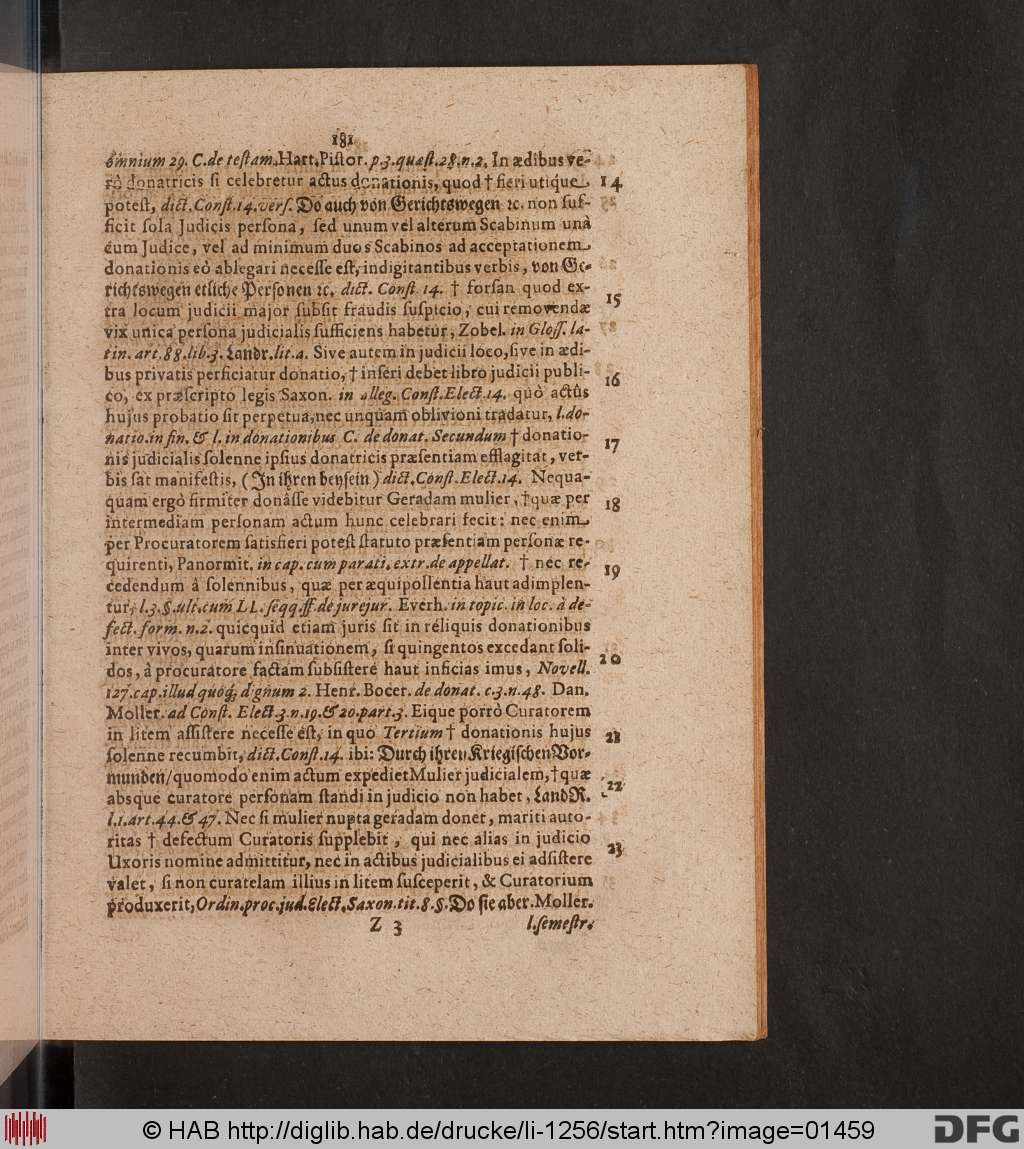 181
omnium 29. C. de testam. Hart. Pistor. p. 3. quæst. 28. n. 2. In ædibus ve-
rò donatricis si celebretur actus donationis, quod † fieri utique 14
potest, dict. Const. 14. vers. Do auch von Gerichtswegen ꝛc. non suf-
ficit sola Judicis persona, sed unum vel alterum Scabinum unà
cum Judice, vel ad minimum duos Scabinos ad acceptationem
donationis eò ablegari necesse est, indigitantibus verbis, von Ge-
richtswegen etliche Personen ꝛc. dict. Const. 14. † forsan quod ex- 15
tra locum judicii major subsit fraudis suspicio, cui removendæ
vix unica persona judicialis sufficiens habetur, Zobel. in Gloss. la-
tin. art. 88. lib. 3. Landr. lit. a. Sive autem in judicii loco, sive in ædi-
bus privatis perficiatur donatio, † inseri debet libro judicii publi- 16
co, ex præscripto legis Saxon. in alleg. Const. Elect. 14. quò actûs
hujus probatio sit perpetua, nec unquam oblivioni tradatur, l. do-
natio. in fin. & l. in donationibus C. de donat. Secundum † donatio- 17
nis judicialis solenne ipsius donatricis præsentiam efflagitat, ver-
bis sat manifestis, (In ihren beysein) dict. Const. Elect. 14. Nequa-
quam ergò firmiter donâsse videbitur Geradam mulier, † quæ per 18
intermediam personam actum hunc celebrari fecit: nec enim
per Procuratorem satisfieri potest statuto præsentiam personæ re-
quirenti, Panormit. in cap. cum parati. extr. de appellat. † nec re- 19
cedendum â solennibus, quæ per æquipollentia haut adimplen-
tur, l. 3. §. ult. cum LL. seqq. ff. de jurejur. Everh. in topic. in loc. à de-
fect. form. n. 2. quicquid etiam juris sit in reliquis donationibus
inter vivos, quarum insinuationem, si quingentos excedant soli- 20
dos, â procuratore factam subsistere haut inficias imus, Novell.
127. cap. illud quoq; dignum 2. Henr. Bocer. de donat. c. 3. n. 48. Dan.
Moller. ad Const. Elect. 3. n. 19. & 20. part. 3. Eique porrò Curatorem
in litem assistere necesse est, in quo Tertium † donationis hujus 21
solenne recumbit, dict. Const. 14. ibi: Durch ihren Kriegischen Vor-
munden / quomodo enim actum expediet Mulier judicialem, † quæ 22
absque curatore personam standi in judicio non habet, LandR.
l. 1. art. 44. & 47. Nec si mulier nupta geradam donet, mariti auto-
ritas † defectum Curatoris supplebit, qui nec alias in judicio 23
Uxoris nomine admittitur, nec in actibus judicialibus ei adsistere
valet, si non curatelam illius in litem susceperit, & Curatorium
produxerit, Ordin. proc. jud. Elect. Saxon. tit. 8. §. Do sie aber. Moller.
Z 3 l. semestr.
© HAB http://diglib.hab.de/drucke/li-1256/start.htm?image=01459
DFG